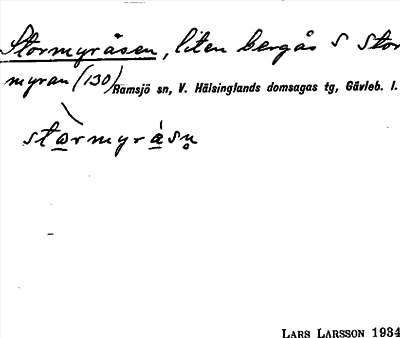 Stormyråsen, liten bergås S Stor
myran (130) Ramsjö sn, V. Hälsinglands domsagas tg, Gävleb. l.
stormyråsn̥
LARS LARSSON 1934